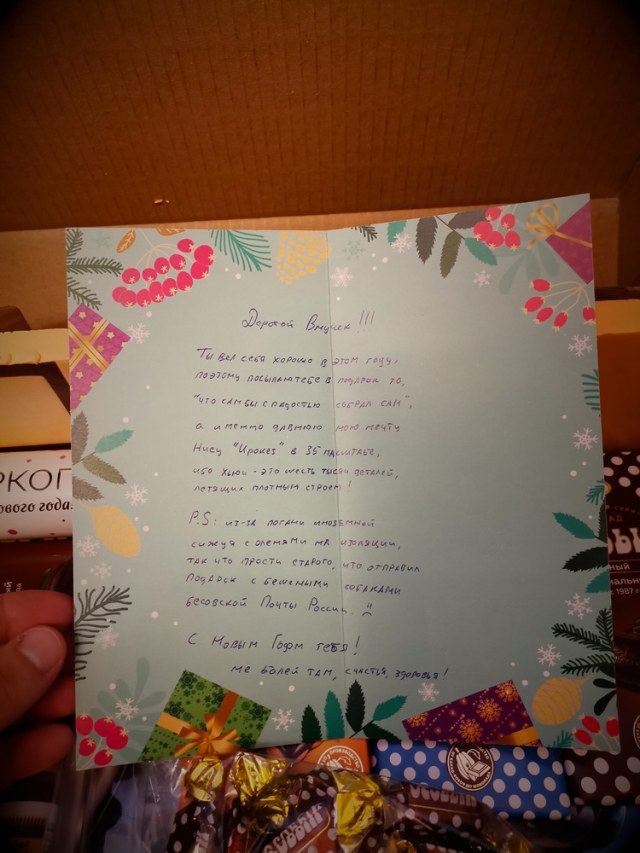 Дорогой Внучек!!!
Ты вёл себя хорошо в этом году,
поэтому посылаю тебе в подарок то,
"что сам бы с радостью собрал сам",
а именно давнюю мою мечту
Хьюи "Ирокез" в 35 масштабе,
ибо Хьюи - это шесть тысяч деталей,
летящих плотным строем!
P.S: из-за погани иноземной
сижу с оленями на изоляции,
так что прости старого, что отправил
подарок с бешеными собаками
бесовской Почты России.
С Новым Годом тебя!
не болей там, счастья, здоровья!
ового года
с 1987 г